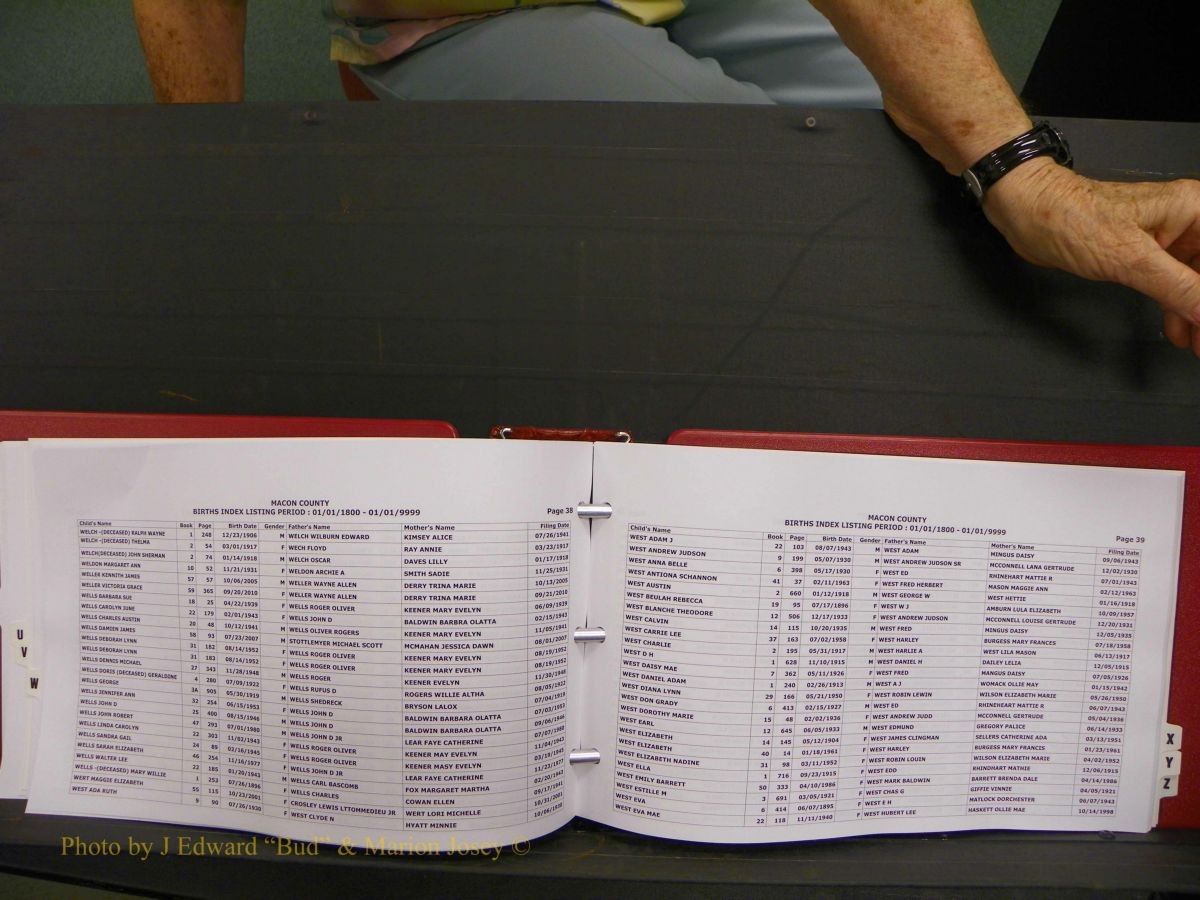 MACON COUNTY
BIRTHS INDEX LISTING PERIOD : 01/01/1800 - 01/01/9999 Page 38
Child's Name Book Page Birth Date Gender Father's Name Mother's Name Filing Date
WELCH -(DECEASED) RALPH WAYNE 1 248 12/23/1906 M WELCH WILBURN EDWARD KIMSEY ALICE 07/26/1941
WELCH -(DECEASED) THELMA 2 54 03/01/1917 F WECH FLOYD RAY ANNIE 03/23/1917
WELCH(DECEASED) JOHN SHERMAN 2 74 01/14/1918 M WELCH OSCAR DAVES LILLY 01/17/1918
WELDON MARGARET ANN 10 52 11/21/1931 F WELDON ARCHIE A SMITH SADIE 11/25/1931
WELLER KENNITH JAMES 57 57 10/06/2005 M WELLER WAYNE ALLEN DERRY TRINA MARIE 10/13/2005
WELLER VICTORIA GRACE 59 365 09/20/2010 F WELLER WAYNE ALLEN DERRY TRINA MARIE 09/21/2010
WELLS BARBARA SUE 18 25 04/22/1939 F WELLS ROGER OLIVER KEENER MARY EVELYN 06/09/1939
WELLS CAROLYN JUNE 22 179 02/01/1943 F WELLS JOHN D BALDWIN BARBRA OLATTA 02/15/1943
WELLS CHARLES AUSTIN 20 48 10/12/1941 M WELLS OLIVER ROGERS KEENER MARY EVELYN 11/05/1941
WELLS DAMIEN JAMES 58 93 07/23/2007 M STOTTLEMYER MICHAEL SCOTT MCMAHAN JESSICA DAWN 08/01/2007
WELLS DEBORAH LYNN 31 182 08/14/1952 F WELLS ROGER OLIVER KEENER MARY EVELYN 08/19/1952
WELLS DEBORAH LYNN 31 183 08/14/1952 F WELLS ROGER OLIVER KEENER MARY EVELYN 08/19/1952
WELLS DENNIS MICHAEL 27 343 11/28/1948 M WELLS ROGER KEENER EVELYN 11/30/1948
WELLS DORIS (DECEASED) GERALDINE 4 280 07/09/1922 F WELLS RUFUS D ROGERS WILLIE ALTHA 08/05/1922
WELLS GEORGE 3A 905 05/30/1919 M WELLS SHEDRECK BRYSON LALOX 07/04/1919
WELLS JENNIFER ANN 32 254 06/15/1953 F WELLS JOHN D BALDWIN BARBARA OLATTA 07/03/1953
WELLS JOHN D 25 400 08/15/1946 M WELLS JOHN D BALDWIN BARBARA OLATTA 09/06/1946
WELLS JOHN ROBERT 47 293 07/01/1980 M WELLS JOHN D JR LEAR FAYE CATHERINE 07/07/1980
WELLS LINDA CAROLYN 22 301 11/02/1943 F WELLS ROGER OLIVER KEENER MAY EVELYN 11/04/1943
WELLS SANDRA GAIL 24 85 02/16/1945 F WELLS ROGER OLIVER KEENER MASY EVELYN 03/19/1945
WELLS SARAH ELIZABETH 46 254 11/16/1977 F WELLS JOHN D JR LEAR FAYE CATHERINE 11/23/1977
WELLS WALTER LEE 22 185 01/20/1943 M WELLS CARL BASCOMB FOX MARGARET MARTHA 02/20/1943
WELLS -(DECEASED) MARY WILLIE 1 253 07/26/1896 F WELLS CHARLES COWAN ELLEN 09/17/1941
WERT MAGGIE ELIZABETH 55 115 10/23/2001 F CROSLEY LEWIS LTTOMMEDIEU JR WERT LORI MICHELLE 10/31/2001
WEST ADA RUTH 9 90 07/26/1930 F WEST CLYDE N HYATT MINNIE
U
V
W
MACON COUNTY
BIRTHS INDEX LISTING PERIOD : 01/01/1800 - 01/01/9999 Page 39
Child's Name Book Page Birth Date Gender Father's Name Mother's Name Filing Date
WEST ADAM J 22 103 08/07/1943 M WEST ADAM MINGUS DAISY 09/06/1943
WEST ANDREW JUDSON 9 199 05/07/1930 M WEST ANDREW JUDSON SR MCCONNELL LANA GERTRUDE 12/02/1930
WEST ANNA BELLE 6 398 05/17/1930 F WEST ED RHINEHART MATTIE R 07/01/1943
WEST ANTIONA SCHANNON 41 37 02/11/1963 F WEST FRED HERBERT MASON MAGGIE ANN 02/12/1963
WEST AUSTIN 2 660 01/12/1918 M WEST GEORGE W WEST HETTIE 01/16/1918
WEST BEULAH REBECCA 19 95 07/17/1896 F WEST W J AMBURN LULA ELIZABETH 10/09/1957
WEST BLANCHE THEODORE 12 506 12/17/1933 F WEST ANDREW JUDSON MCCONNELL LOUISE GERTRUDE 12/20/1931
WEST CALVIN 14 115 10/20/1935 M WEST FRED MINGUS DAISY 12/05/1935
WEST CARRIE LEE 37 163 07/02/1958 F WEST HARLEY BURGESS MARY FRANCES 07/18/1958
WEST CHARLIE 2 195 05/31/1917 M WEST HARLIE A WEST LILA MASON 06/13/1917
WEST D H 1 628 11/10/1915 M WEST DANIEL H DAILEY LELIA 12/05/1915
WEST DAISY MAE 7 362 05/11/1926 F WEST FRED MANGUS DAISY 07/05/1926
WEST DANIEL ADAM 1 240 02/26/1913 M WEST A J WOMACK OLLIE MAY 01/15/1942
WEST DIANA LYNN 29 166 05/21/1950 F WEST ROBIN LEWIN WILSON ELIZABETH MARIE 05/26/1950
WEST DON GRADY 6 413 02/15/1927 M WEST ED RHINEHART MATTIE R 06/07/1943
WEST DOROTHY MARIE 15 48 02/02/1936 F WEST ANDREW JUDD MCCONNELL GERTRUDE 05/04/1936
WEST EARL 12 645 06/05/1933 M WEST EDMUND GREGORY PALICE 06/14/1933
WEST ELIZABETH 14 145 05/12/1904 F WEST JAMES CLINGMAN SELLERS CATHERINE ADA 03/13/1951
WEST ELIZABETH 40 14 01/18/1961 F WEST HARLEY BURGESS MARY FRANCIS 01/23/1961
WEST ELIZABETH NADINE 31 98 03/11/1952 F WEST ROBIN LOUIN WILSON ELIZABETH MARIE 04/02/1952
WEST ELLA 1 716 09/23/1915 F WEST EDD RHINDHART MATHIE 12/06/1915
WEST EMILY BARRETT 50 333 04/10/1986 F WEST MARK BALDWIN BARRETT BRENDA DALE 04/14/1986
WEST ESTILLE M 3 691 03/05/1921 F WEST CHAS G GIFFIE VINNIE 04/05/1921
WEST EVA 6 414 06/07/1895 F WEST E H MATLOCK DORCHESTER 06/07/1943
WEST EVA MAE 22 118 11/11/1940 F WEST HUBERT LEE HASKETT OLLIE MAE 10/14/1998
X
Y
Z
Photo by J Edward “Bud” & Marion Josey ©